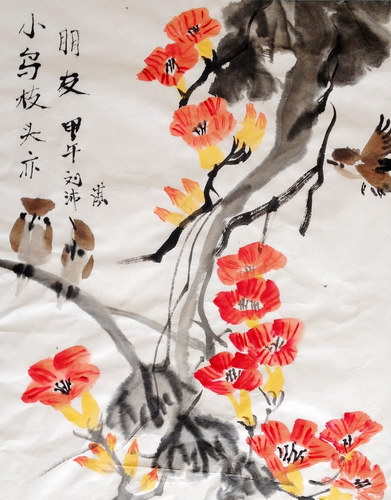 小鸟枝头亦
朋友 甲午刘沛